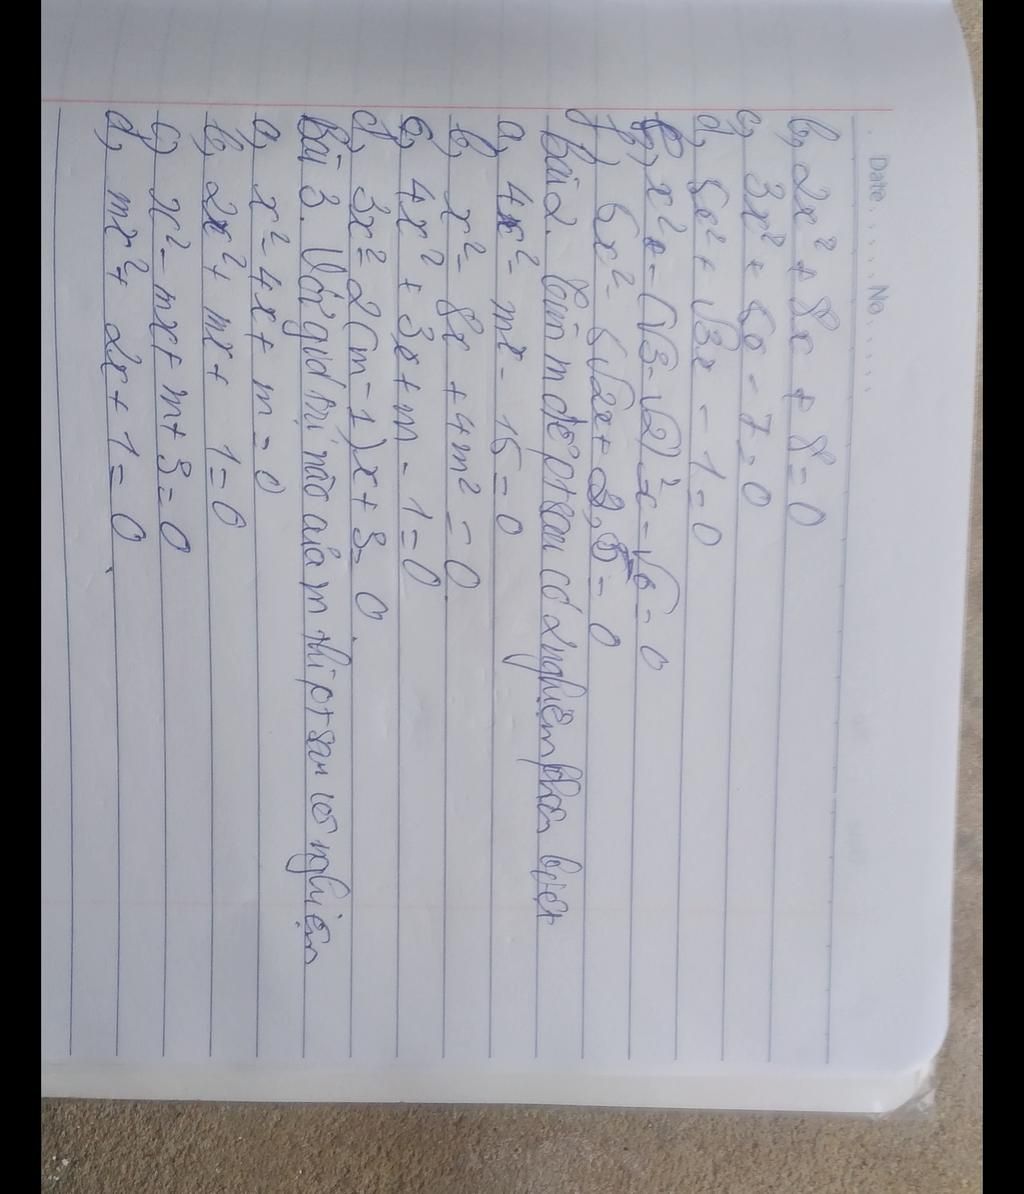 Date........No........
b, 2x² + 8x + 8 = 0
c, 3x² + 5x - 7 = 0
d, 5x² + √3x - 1 = 0
x² - (√3 - √2)²x - √6 = 0
f, 5x² - 5√2x + 2,5 = 0
Bài 2. Tìm m để pt sau có 2 nghiệm phân biệt
a, 4x² - mx - 15 = 0
b, x² - 8x + 4m² = 0
c, 4x² + 3x + m - 1 = 0
d, 3x² - 2(m - 1)x + 3 = 0
Bài 3. Với giá trị nào của m thì pt sau có nghiệm
a, x² - 4x + m = 0
b, 2x² + mx + 1 = 0
c, x² - mx + m + 3 = 0
d, mx² + 2x + 1 = 0